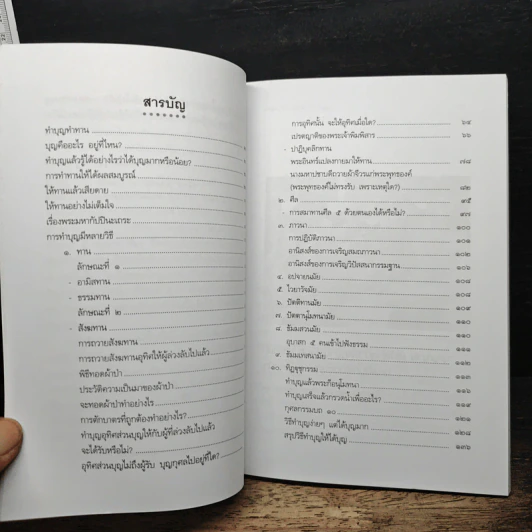 สารบัญ
ทำบุญทำทาน
บุญคืออะไร อยู่ที่ไหน?
ทำบุญแล้วรู้ได้อย่างไรว่าได้บุญมากหรือน้อย?
การทำทานให้ได้ผลสมบูรณ์
ให้ทานแล้วเสียดาย
ให้ทานอย่างไม่เต็มใจ
เรื่องพระมหากัปปินะเถระ
การทำบุญมีหลายวิธี
๑. ทาน
ลักษณะที่ ๑
- อามิสทาน
- ธรรมทาน
ลักษณะที่ ๒
- สังฆทาน
การถวายสังฆทาน
การถวายสังฆทานอุทิศให้ผู้ล่วงลับไปแล้ว
พิธีทอดผ้าป่า
ประวัติความเป็นมาของผ้าป่า
จะทอดผ้าป่าทำอย่างไร
การตักบาตรที่ถูกต้องทำอย่างไร?
ทำบุญอุทิศส่วนบุญให้กับผู้ที่ล่วงลับไปแล้ว
จะได้รับหรือไม่?
อุทิศส่วนบุญไม่ถึงผู้รับ บุญกุศลไปอยู่ที่ใด?
การอุทิศนั้น จะให้อุทิศเมื่อใด? ๖๔
เปรตญาติของพระเจ้าพิมพิสาร ๖๖
- ปาฏิบุคลิกทาน
พระอินทร์แปลงกายมาให้ทาน ๗๘
นางมหาปชาบดีถวายผ้าจีวรแก่พระพุทธองค์
(พระพุทธองค์ไม่ทรงรับ เพราะเหตุใด?) ๘๒
๒. ศีล ๙๕
- การสมาทานศีล ๕ ด้วยตนเองได้หรือไม่? ๙๗
๓. ภาวนา ๑๐๐
การปฏิบัติภาวนา ๑๐๑
อานิสงส์ของการเจริญสมถภาวนา ๑๐๒
อานิสงส์ของการเจริญวิปัสสนากรรมฐาน ๑๐๖
๔. อปจายนมัย ๑๐๘
๕. ไวยาวัจมัย ๑๐๘
๖. ปัตติทานมัย ๑๐๘
๗. ปัตตานุโมทนามัย ๑๑๐
๘. ธัมมสวนมัย ๑๑๑
อุบาสก ๕ คนเข้าไปฟังธรรม
๙. ธัมมเทสนามัย
๑๐. ทิฏฐุชุกรรม
ทำบุญแล้วพระก็อนุโมทนา
ทำบุญเสร็จแล้วกรวดน้ำเพื่ออะไร?
กุศลกรรมบถ ๑๐ ๑๒๑
วิธีทำบุญง่ายๆ แต่ได้บุญมาก ๑๒๘
สรุปวิธีทำบุญให้ได้บุญ ๑๓๖